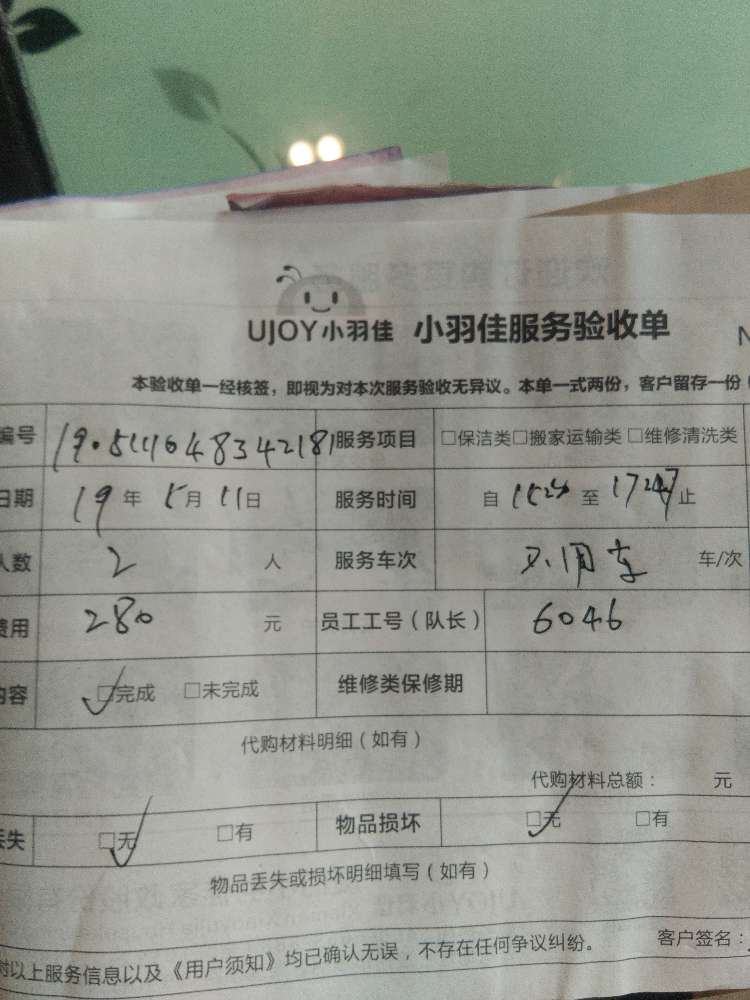 UJOY小羽佳 小羽佳服务验收单
本验收单一经核签，即视为对本次服务验收无异议。本单一式两份，客户留存一份
编号 1905111648342181 服务项目 □保洁类□搬家运输类 □维修清洗类
日期 19年 5月 11日 服务时间 自 至 止
人数 2 人 服务车次 不用车 车/次
费用 280 元 员工工号（队长） 6046
内容 □完成 □未完成 维修类保修期
代购材料明细（如有）
代购材料总额： 元
丢失 □无 □有 物品损坏 □无 □有
物品丢失或损坏明细填写（如有）
对以上服务信息以及《用户须知》均已确认无误，不存在任何争议纠纷。 客户签名：